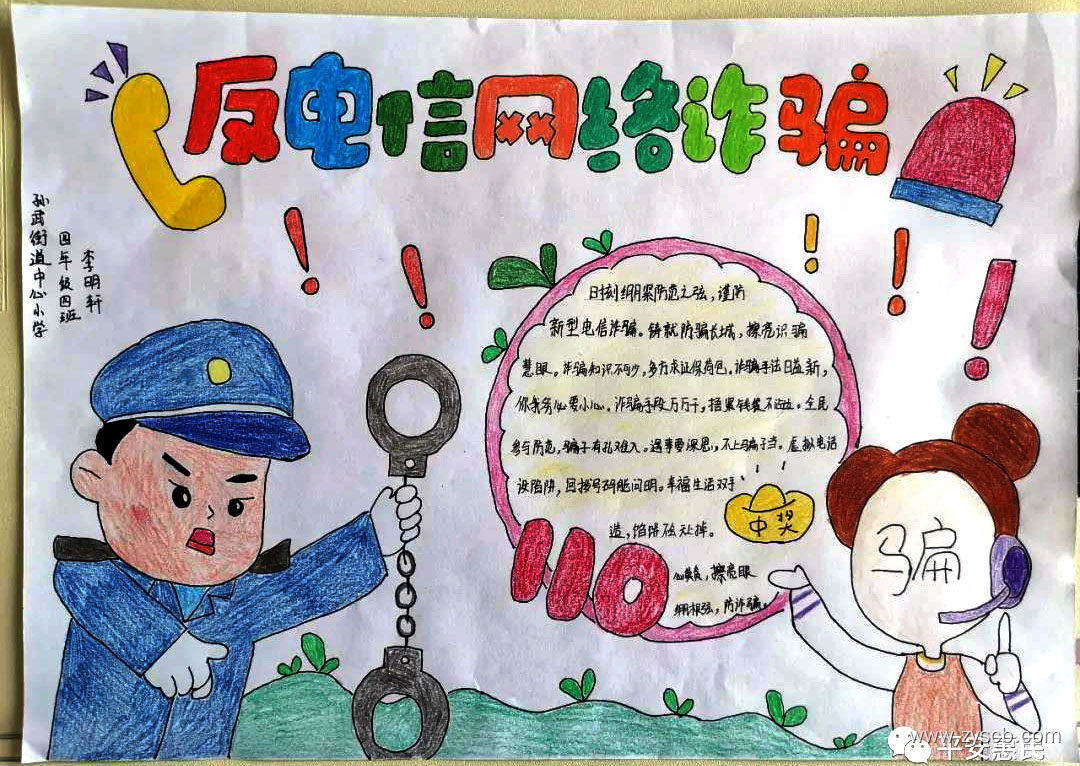 反电信网络诈骗
孙武街道中心小学
四年级四班
李明轩
时刻绷紧防范之弦，谨防
新型电信诈骗。铸就防骗长城，擦亮识骗
慧眼。诈骗知识不可少，多方求证保荷包。诈骗手法日益新，
你我务必要小心。诈骗手段万万千，捂紧钱袋不沾边。全民
参与防范，骗子有孔难入。遇事要深思，不上骗子当。虚拟电话
设陷阱，回拨号码能问明。幸福生活双手
造，馅饼砸头掉。
擦亮眼
绷根弦，防诈骗。
110
中奖
骗
www.zyseb.com
平安惠民